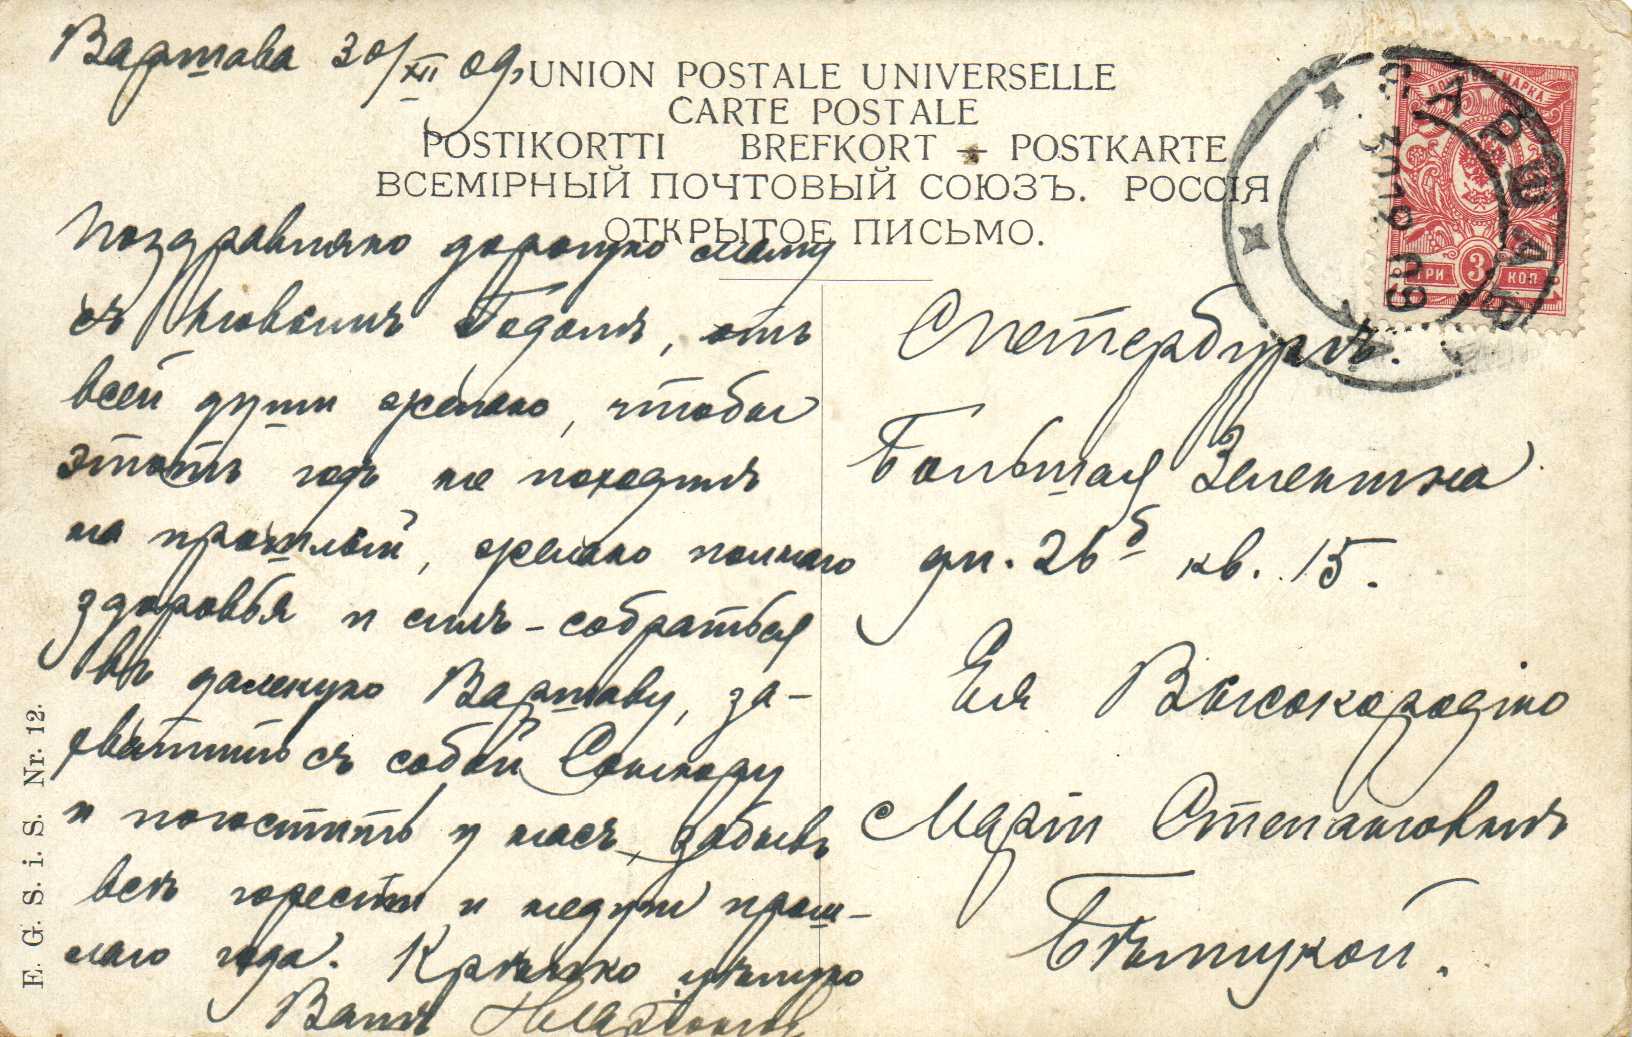 Варшава 30/XII 09.
UNION POSTALE UNIVERSELLE
CARTE POSTALE
POSTIKORTTI BREFKORT — POSTKARTE
ВСЕМІРНЫЙ ПОЧТОВЫЙ СОЮЗЪ. РОССІЯ
ОТКРЫТОЕ ПИСЬМО.
ПОЧТОВАЯ МАРКА
ТРИ 3 КОП
ВАРШАВА
30 12 09
Поздравляю дорогую маму
съ Новымъ Годомъ, отъ
всей души желаю, чтобы
этотъ годъ не походилъ
на прошлый, желаю полнаго
здоровья и силъ - собраться
въ далекую Варшаву, за-
хватить съ собой
и погостить у насъ, забывъ
всѣ горести и недуги прош-
лаго года. Крѣпко цѣлую
Вашъ
СПетербургъ.
Большая Зеленина
д. 26б кв. 15.
Ея Высокородію
Маріи Степановнѣ
E. G. S. i. S. Nr. 12.